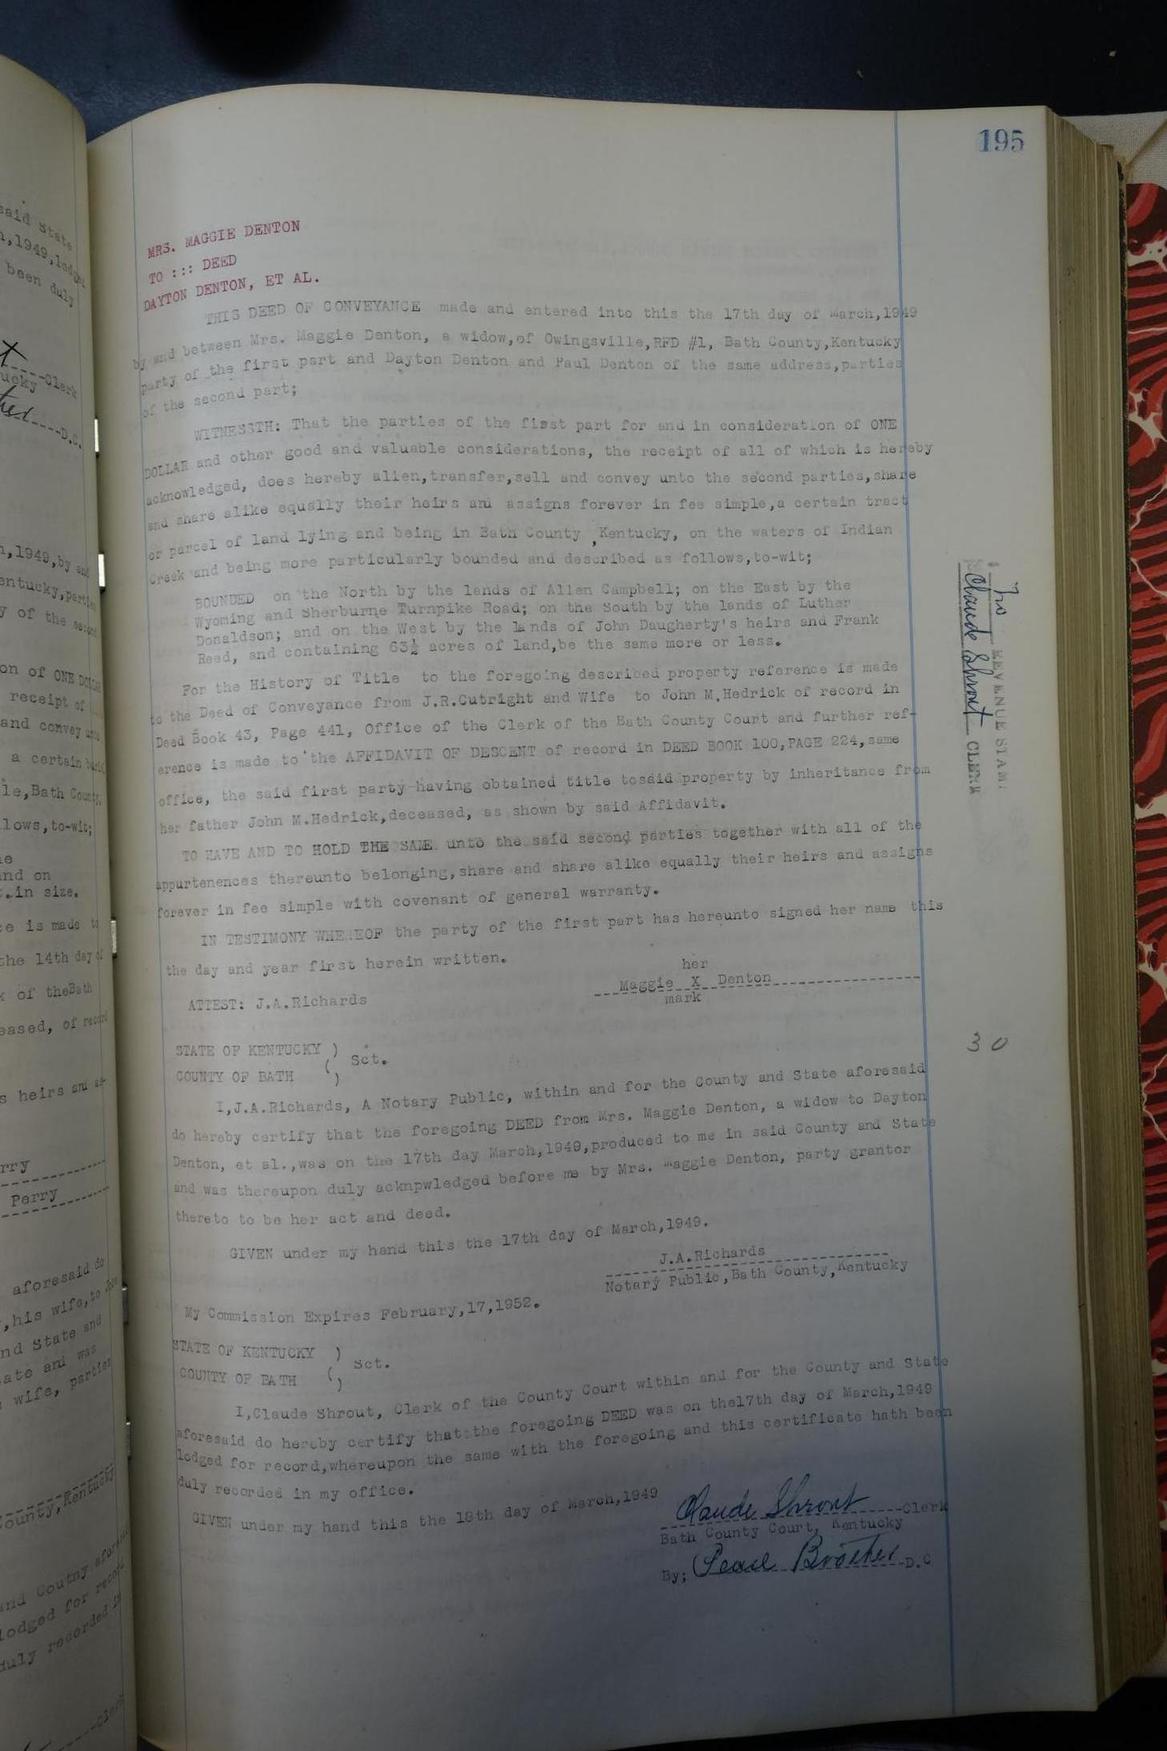 195
MRS. MAGGIE DENTON
TO ::: DEED
DAYTON DENTON, ET AL.
THIS DEED OF CONVEYANCE made and entered into this the 17th day of March,1949
by and between Mrs. Maggie Denton, a widow,of Owingsville,RFD #1, Bath County,Kentucky
party of the first part and Dayton Denton and Paul Denton of the same address,parties
of the second part;
WITNESSTH: That the parties of the first part for and in consideration of ONE
DOLLAR and other good and valuable considerations, the receipt of all of which is hereby
acknowledged, does hereby alien,transfer,sell and convey unto the second parties,share
and share alike equally their heirs and assigns forever in fee simple,a certain tract
or parcel of land lying and being in Bath County ,Kentucky, on the waters of Indian
Creek and being more particularly bounded and described as follows,to-wit;
BOUNDED on the North by the lands of Allen Campbell; on the East by the
Wyoming and Sherburne Turnpike Road; on the South by the lands of Luther
Donaldson; and on the West by the lands of John Daugherty's heirs and Frank
Reed, and containing 63½ acres of land,be the same more or less.
For the History of Title to the foregoing described property reference is made
to the Deed of Conveyance from J.R.Cutright and Wife to John M.Hedrick of record in
Deed Book 43, Page 441, Office of the Clerk of the Bath County Court and further ref-
erence is made to the AFFIDAVIT OF DESCENT of record in DEED BOOK 100,PAGE 224,same
office, the said first party having obtained title tosaid property by inheritance from
her father John M.Hedrick,deceased, as shown by said Affidavit.
TO HAVE AND TO HOLD THE SAME unto the said second parties together with all of the
appurtenences thereunto belonging,share and share alike equally their heirs and assigns
forever in fee simple with covenant of general warranty.
IN TESTIMONY WHEREOF the party of the first part has hereunto signed her name this
the day and year first herein written.
her
Maggie X Denton
mark
ATTEST: J.A.Richards
STATE OF KENTUCKY )
( Sct.
COUNTY OF BATH )
I,J.A.Richards, A Notary Public, within and for the County and State aforesaid
do hereby certify that the foregoing DEED from Mrs. Maggie Denton, a widow to Dayton
Denton, et al.,was on the 17th day March,1949,produced to me in said County and State
and was thereupon duly acknpwledged before me by Mrs. Maggie Denton, party grantor
thereto to be her act and deed.
GIVEN under my hand this the 17th day of March,1949.
J.A.Richards
Notary Public,Bath County,Kentucky
My Commission Expires February,17,1952.
STATE OF KENTUCKY )
( Sct.
COUNTY OF BATH )
I,Claude Shrout, Clerk of the County Court within and for the County and State
aforesaid do hereby certify that the foregoing DEED was on the17th day of March,1949
lodged for record,whereupon the same with the foregoing and this certificate hath been
duly recorded in my office.
GIVEN under my hand this the 18th day of March,1949
Claude Shrout Clerk
Bath County Court, Kentucky
By; Pearl Brother D.C
No REVENUE STAMP
Claude Shrout CLERK
30